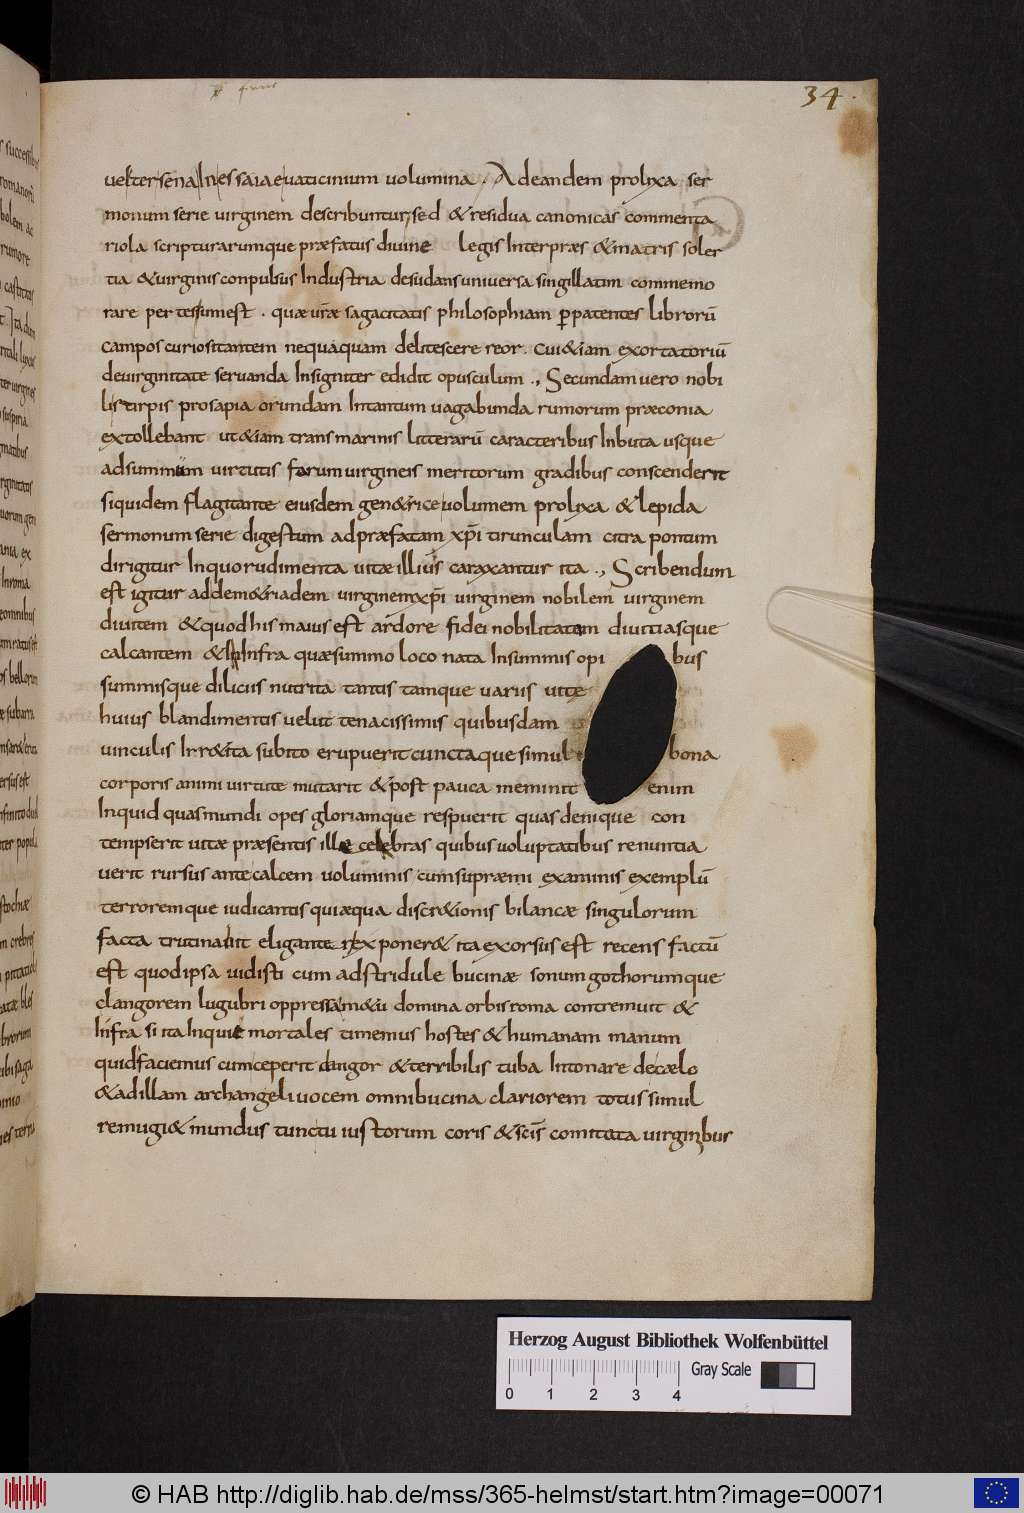 34.
uel ter sena In essaiae uaticinium uolumina. Ad eandem prolyxa ser
monum serie uirginem describuntur, sed & residua canonicas commenta
riola scripturarumque præfatus divine legis Interpræs & matris soler
tia & uirginis conpulsus Industria desudans universa singillatim commemo
rare per tesum est. quæ uræ sagacitatis philosophiam ꝑ patentes librorū
campos curiositantem nequaquam delitescere reor. cui &iam exortatoriū
de uirginitate seruanda Insigniter edidit opusculum., Secundam uero nobi
li stirpis prosapia orundam Intantum uagabunda rumorum præconia
extollebant ut &iam trans marinis litterarū caracteribus Inbuta usque
ad summum uirtutis forum uirgineis meritorum gradibus conscenderit
siquidem flagitante eiusdem gen&rice uolumem prolyxa & lepida
sermonum serie digestum ad præfatam xp̄i tirunculam citra pontum
dirigitur In quo rudimenta uitæ illius caraxantur ita., Scribendum
est igitur ad dem&riadem uirginem xp̄i uirginem nobilem uirginem
diuitem & quod his maius est ardore fidei nobilitatem diuitiasque
calcantem & Infra quæ summo loco nata In summis opi bus
summisque diliciis nutrita tantis tamque uariis uitæ
huius blandimentis uelut tenacissimis quibusdam
uinculis Irr&ita subito erupuerit cunctaque simul bona
corporis animi uirtute mutarit & post pauca meminit enim
Inquid quas mundi opes gloriamque respuerit quas denique con
tempserit uitæ præsentis illæ celebras quibus uoluptatibus renuntia
uerit rursus ante calcem uoluminis cum supræmi examinis exemplū
terroremque iudicantis qui æqua discr&ionis bilancæ singulorum
facta trutinauit eligante exponer& ita exorsus est recens factū
est quod ipsa uidisti cum ad stridule bucinæ sonum gothorumque
clangorem lugubri oppressa m&u domina orbis roma contremuit &
Infra si ita Inquit mortales timemus hostes & humanam manum
quid faciemus cum ceperit clangor & terribilis tuba Intonare de cælo
& ad illam archangeli uocem omni bucina clariorem totus simul
remugi& mundus tunc tu iustorum coris & scis̄ comitata uirginibus
Herzog August Bibliothek Wolfenbüttel
0 1 2 3 4 Gray Scale
© HAB http://diglib.hab.de/mss/365-helmst/start.htm?image=00071